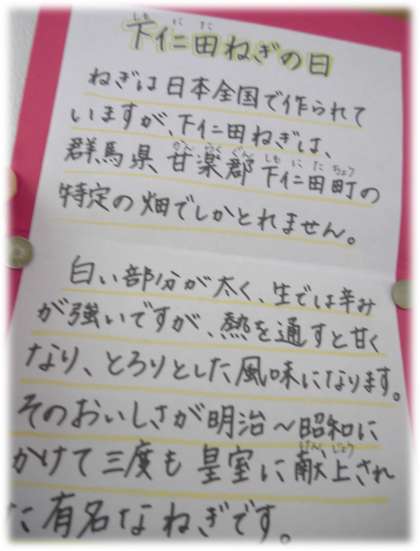 下仁田ねぎの日
ねぎは日本全国で作られて
いますが、下仁田ねぎは、
群馬県甘楽郡下仁田町の
特定の畑でしかとれません。
白い部分が太く、生では辛み
が強いですが、熱を通すと甘く
なり、とろりとした風味になります。
そのおいしさが明治～昭和に
かけて三度も皇室に献上され
た有名なねぎです。